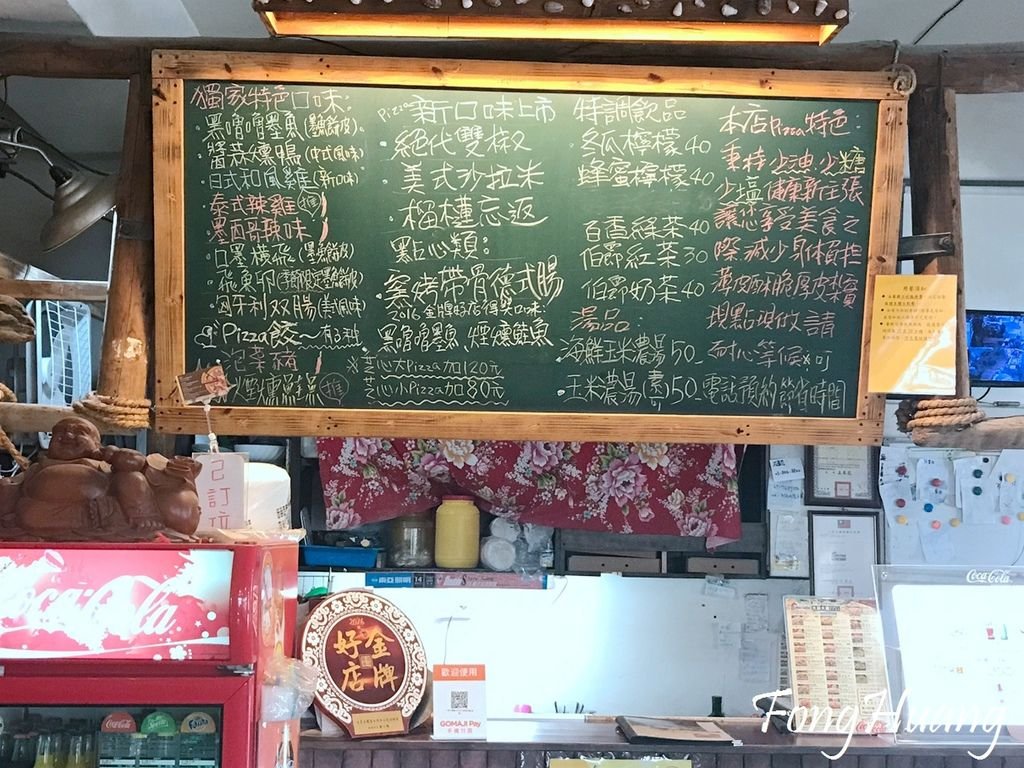 獨家特色口味:
黑嚕嚕墨魚(墨魚餅皮)
醬蒜燻鴨(中式風味)
日式和風雞(新口味)
泰式辣雞 推
墨西哥辣味
口墨橫飛(墨魚餅皮)
飛魚卵(季節限定墨魚餅皮)
匈牙利双腸(美式風味)
Pizza餃~有2種
泡菜豬
火烤燻蒜腸 推
Pizza新口味上市
絕代雙椒
美式沙拉米
榴槤忘返
點心類:
窯烤帶骨德式腸
2016金牌好店得獎口味:
黑嚕嚕墨魚 煙燻鮭魚
※芝心大Pizza加120元
芝心小Pizza加80元
特調飲品
冬瓜檸檬40
蜂蜜檸檬40
百香綠茶40
伯爵紅茶30
伯爵奶茶40
湯品:
海鮮玉米濃湯50
玉米濃湯(素可)50
本店Pizza特色:
秉持少油少糖
少塩健康新主張
讓您享受美食之
際減少身體負担
薄皮酥脆厚皮紮實
現點現做請
耐心等候※可
電話預約節省時間
已訂位
Coca-Cola
2016
金牌
好店
歡迎使用
GOMAJI Pay
手機付款
Coca-Cola
Coca-Cola
Sprite
Fanta
FongHuang